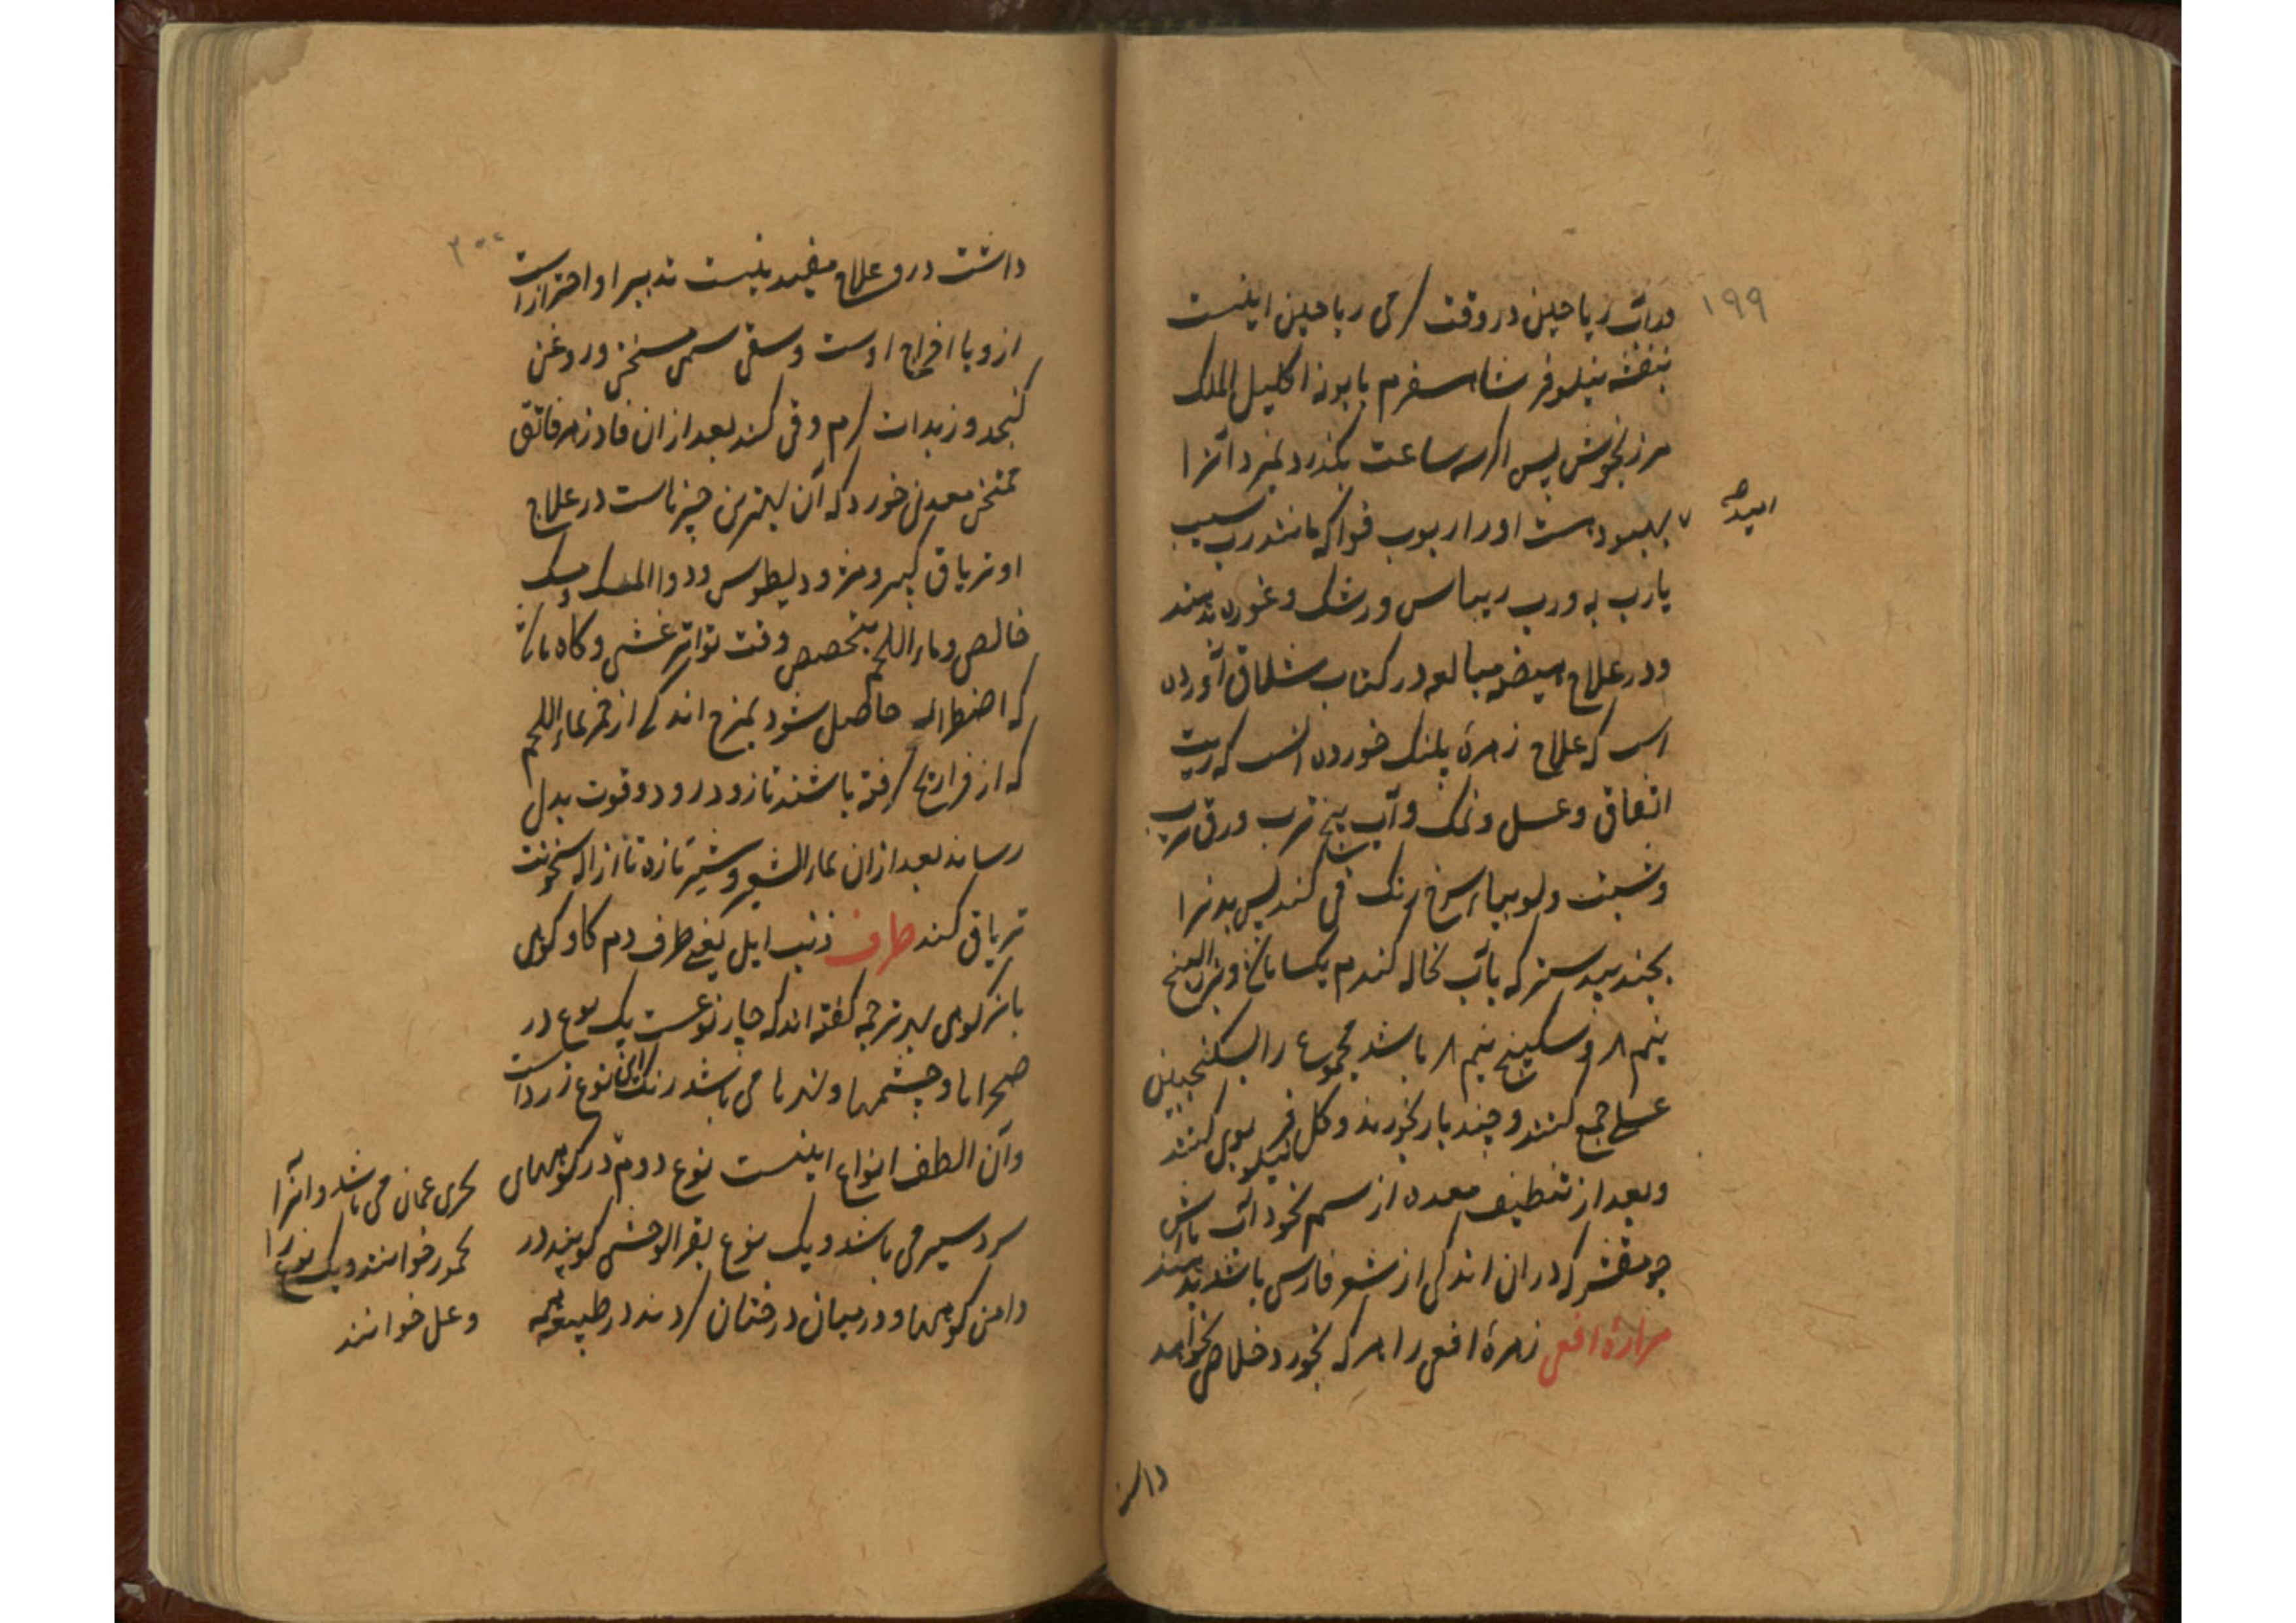 ۱۹۹
ودرآب ریاحین در وقت گرمی ریاحین اینست
بنفشه نیلوفر شاهسفرم بابونه اکلیل الملک
مرزنجوش پس اگر سه ساعت بگذرد نمیرد آنرا
امید بهبود هست او را ربوب فواکه مانند رب سیب
یا رب به و رب ریباس و زرشک و غوره بدهند
و در علاج هیضه مبالعه در کتاب شلماق آورده
است که علاج زهرهٔ پلنک خورده آنست که زیت
انفاق و عسل و نمک و آب بیخ ترب و ورق ترب
و شبت و لوبیاء سرخ رنک قی کند پس بدنرا
بجندبیدستر که با آب نخاله کندم یکساعت و بزر البنج
نیم و سکبینج نیم باشد مجموع را بسکنجبین
عسلی جمع کنند و چند بار بخورند و کل نیلوفر بوی کنند
و بعد از تنظیف معده از سم نخود آب یا آش
جو مقشر که در ان اندکی از شعر فارس باشد بدهند
مرارهٔ افعی زهرهٔ افعی را هر که بخورد خلاص نخواهد
داشت
۲۰۰
داشت در و علاج مفید نیست تدبیر او احتراز است
از و با اخراج اوست و سقی سمن مسخن و روغن
کنجد و زبدات گرم و قی کند بعد از ان فادزهر فائق
ممتحن معدنی خورد که آن بهترین چیزهاست در علاج
او تریاق کبیر و مثرودیطوس و دواء المسک و مسک
خالص و ماء اللحم بتخصیص وقت تواتر غشی و کاه باشد
که اضطراب حاصل شود بمزج اندکی از خمر بماء اللحم
که از فراریج گرفته باشند تا زود در رود و قوت بدل
رساند بعد از ان بماء الشعیر و شیر تازه تا ازاله سخونت
تریاق کند طرف ذنب ایل یعنی طرف دم کاو کوهی
یا بزکوهی بهر ترجمه کفته اند که چهار نوعست یک نوع در
صحراها و چشمها و نهرها می باشد رنک این نوع زرد است
و آن الطف انواع اینست نوع دوم در کوههای
سردسیر می باشد و یک نوع بقر الوحشی کویند در
دامن کوهها و در میان درختان گردند در طبیعت همه
بحری عمان می باشد و آنرا
یحمور خوانند و یک نوع را
وعل خوانند